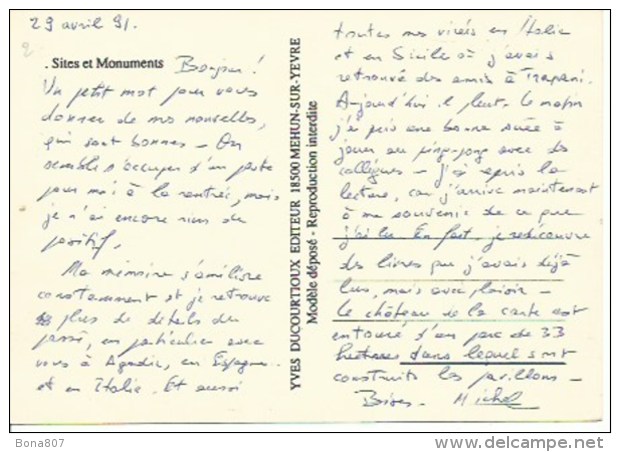 29 avril 91.
. Sites et Monuments
Bonjour !
Un petit mot pour vous
donner de mes nouvelles,
qui sont bonnes - On
semble s'occuper d'un poste
pour moi à la rentrée, mais
je n'ai encore rien de
positif.
Ma mémoire s'améliore
constamment et je retrouve
plus de détails du
passé, en particulier avec
vous à Agadir, en Espagne
et en Italie. Et aussi
YVES DUCOURTIOUX EDITEUR 18500 MEHUN-SUR-YEVRE
Modèle déposé - Reproduction interdite
toutes mes virées en Italie
et en Sicile où j'avais
retrouvé des amis à Trapani.
Aujourd'hui il pleut. Le matin
j'ai pris une bonne suée à
jouer au ping-pong avec des
collègues - j'ai repris la
lecture, car j'arrive maintenant
à me souvenir de ce que
j'ai lu. En fait, je redécouvre
des livres que j'avais déjà
lus, mais avec plaisir -
Le château de la carte est
entouré d'un parc de 33
hectares dans lequel sont
construits les pavillons -
Bises - Michel
Bona807
www.delcampe.net